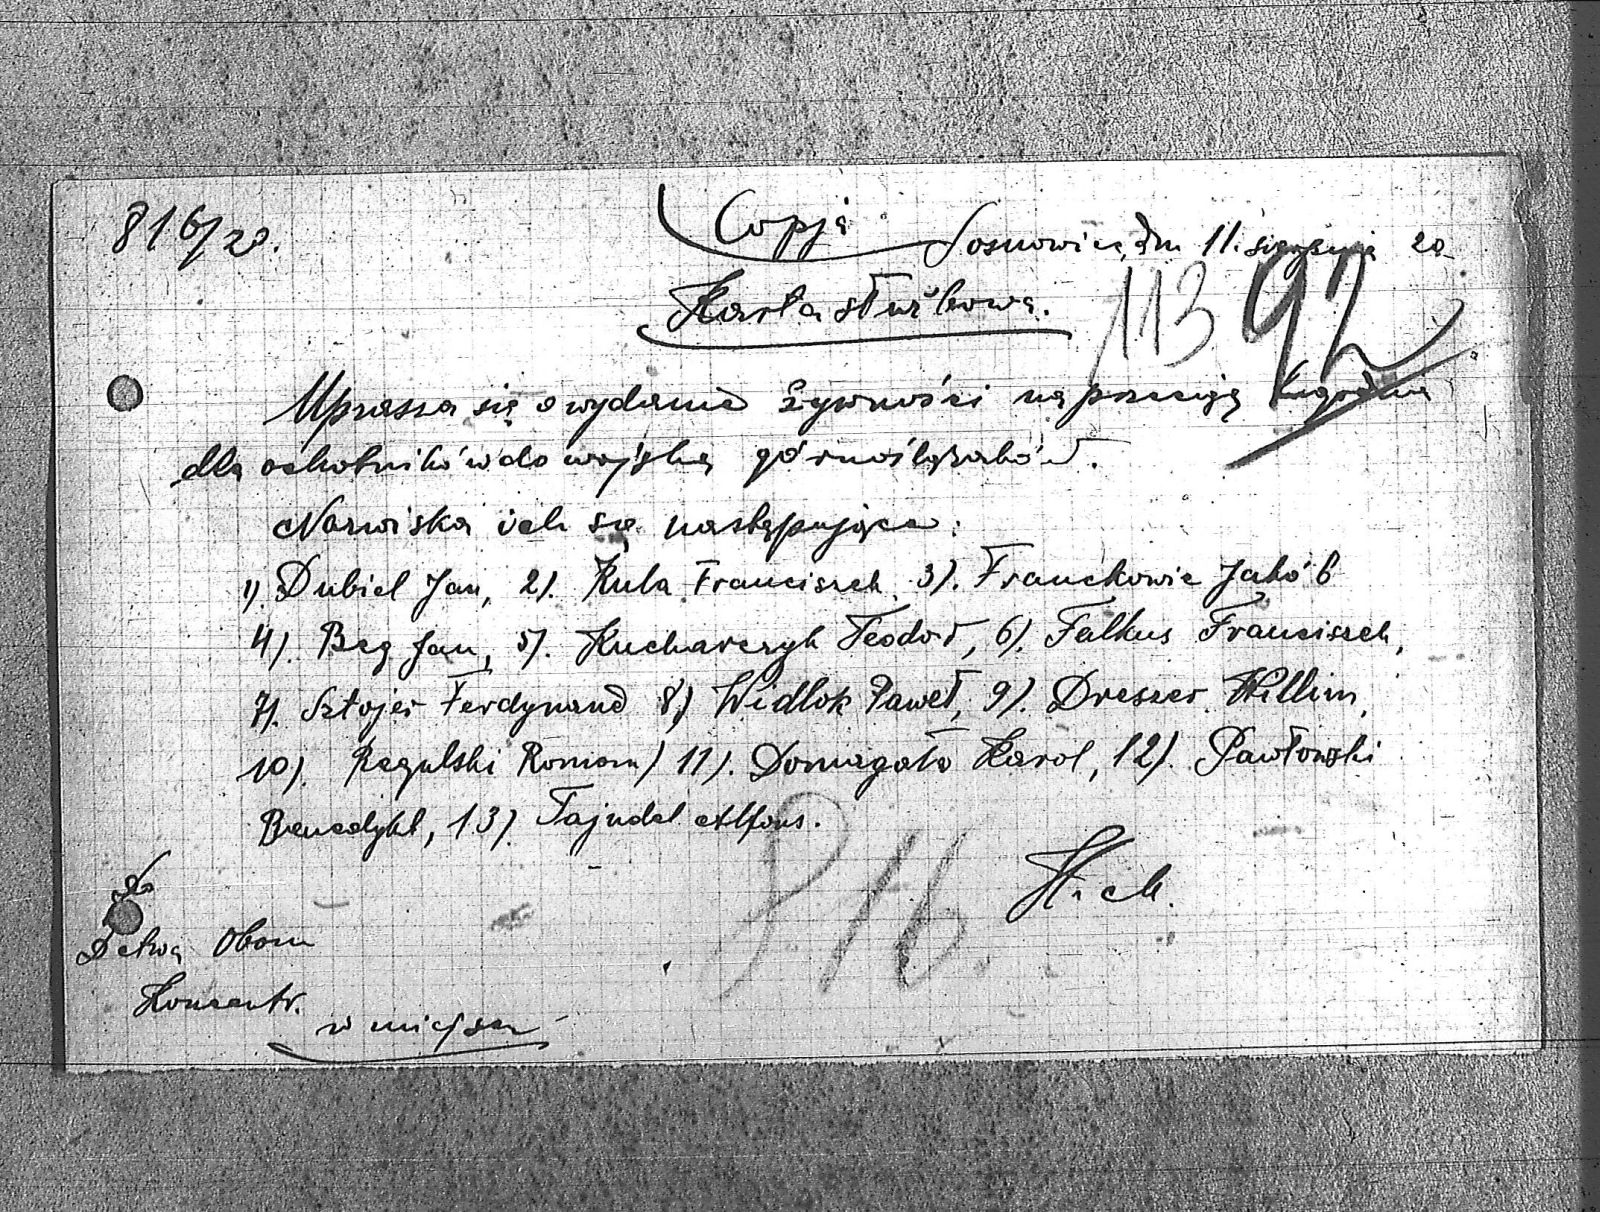 816/20.
Copja
Sosnowice, dn 11. sierpnia 20
Karta służbowa.
113 92
Uprasza się o wydanie żywności na przeciąg tygodnia
dla ochotników do wojska górnoślązaków.
Nazwiska ich są następujące:
1). Dubiel Jan, 2). Kula Franciszek, 3). Franckowic Jakób
4). Beg Jan, 5). Kucharczyk Teodor, 6). Falkus Franciszek,
7). Sztojer Ferdynand 8) Widlok Paweł, 9). Dreszer Willim,
10). Regulski Roman) 11). Domagała Karol, 12). Pawłowski
Benedykt, 13). Tajndel Alfons.
816.
Do
Dctwa Obozu
Koncentr.
w miejscu